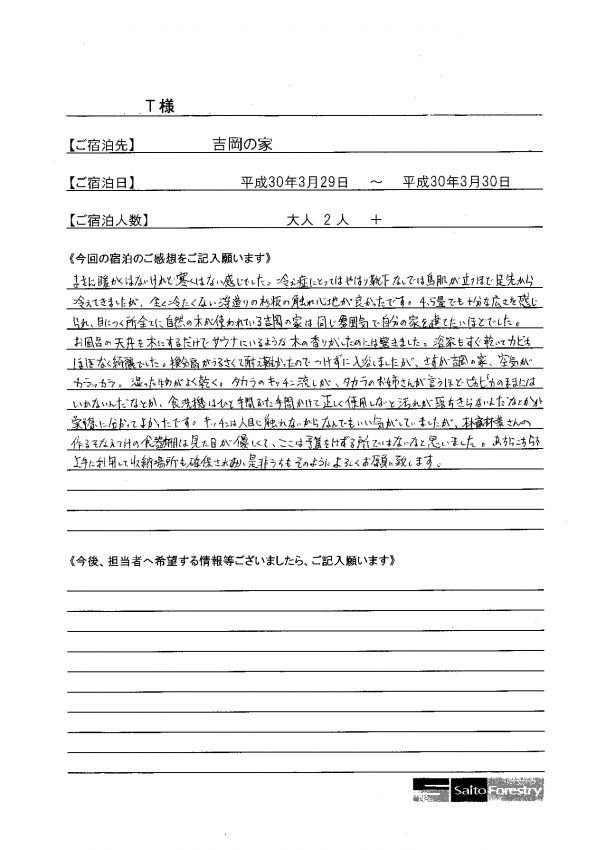 T様
【ご宿泊先】 吉岡の家
【ご宿泊日】 平成30年3月29日 ～ 平成30年3月30日
【ご宿泊人数】 大人 2人 ＋
《今回の宿泊のご感想をご記入願います》
まさに暖かくはないけれど寒くはない感じでした。冷え症にとってはやはり靴下なしでは鳥肌が立つほど足先から
冷えてきましたが、全く冷たくない浮造りの杉板の触れ心地が良かったです。4.5畳でも十分な広さを感じ
られ、目につく所全てに自然の木が使われている吉岡の家は同じ雰囲気で自分の家を建てたいほどでした。
お風呂の天井を木にするだけでサウナにいるような木の香りがしたのには驚きました。浴室もすぐ乾いてカビも
ほぼなく綺麗でした。換気扇がうるさくて耐え難かったのでつけずに入浴しましたが、さすが吉岡の家、空気が
カラッカラ。湿ったものがよく乾く。タカラのキッチン流しが、タカラのお姉さんが言うほど
いかないんだなとか、食洗機はひと手間かけて正しく使用しないと汚れが落ちきらないんだなとかが
実際に分かってよかったです。キッチンは人目に触れないからなんでもいい気がしていましたが、
作るそなえつけの食器棚は見た目が優しくて、ここは予算をけずる所ではないなと思いました。あちらこちら
上手に利用して収納場所も確保され、是非うちもそのようによろしくお願い致します。
《今後、担当者へ希望する情報等ございましたら、ご記入願います》
Saito Forestry